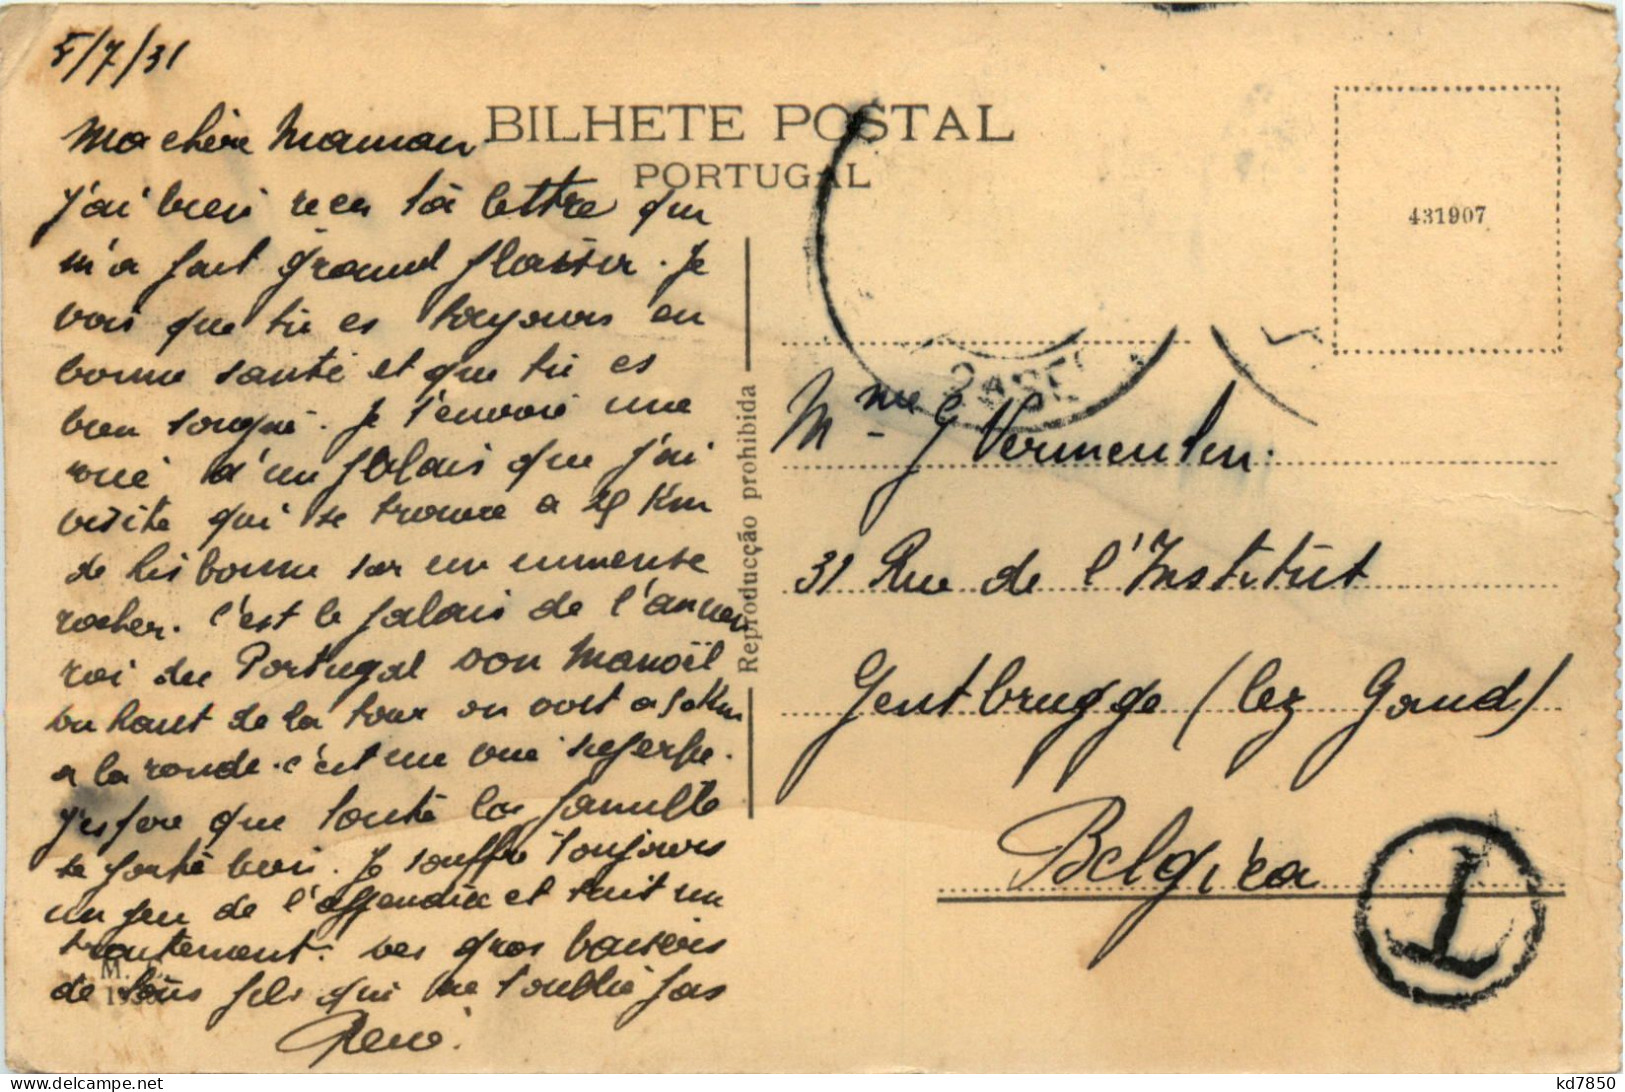 5/7/31
Ma chère Maman
J'ai bien recu ta lettre qui
m'a fait grand plaisir. Je
vois que tu es toujours en
bonne santé et que tu es
bien soigné. Je t'envoie une
vue d'un palais que j'ai
visité qui se trouve a 25 Km
de Lisbonne sur un immense
rocher. C'est le palais de l'ancien
roi du Portugal Don Manoël
en haut de la tour on voit a 50 Km
a la ronde. c'est une vue superbe.
J'espère que toute la famille
se porte bien. Je souffre toujours
un peu de l'appendice et suit un
traitement. des gros baisers
de tons fils qui ne t'oublie pas
René.
BILHETE POSTAL
PORTUGAL
431907
Reproducção prohibida
Mme G Vermeulen
31 Rue de l'Institut
Gentbrugge (lez Gand)
Belgica
T
kd7850